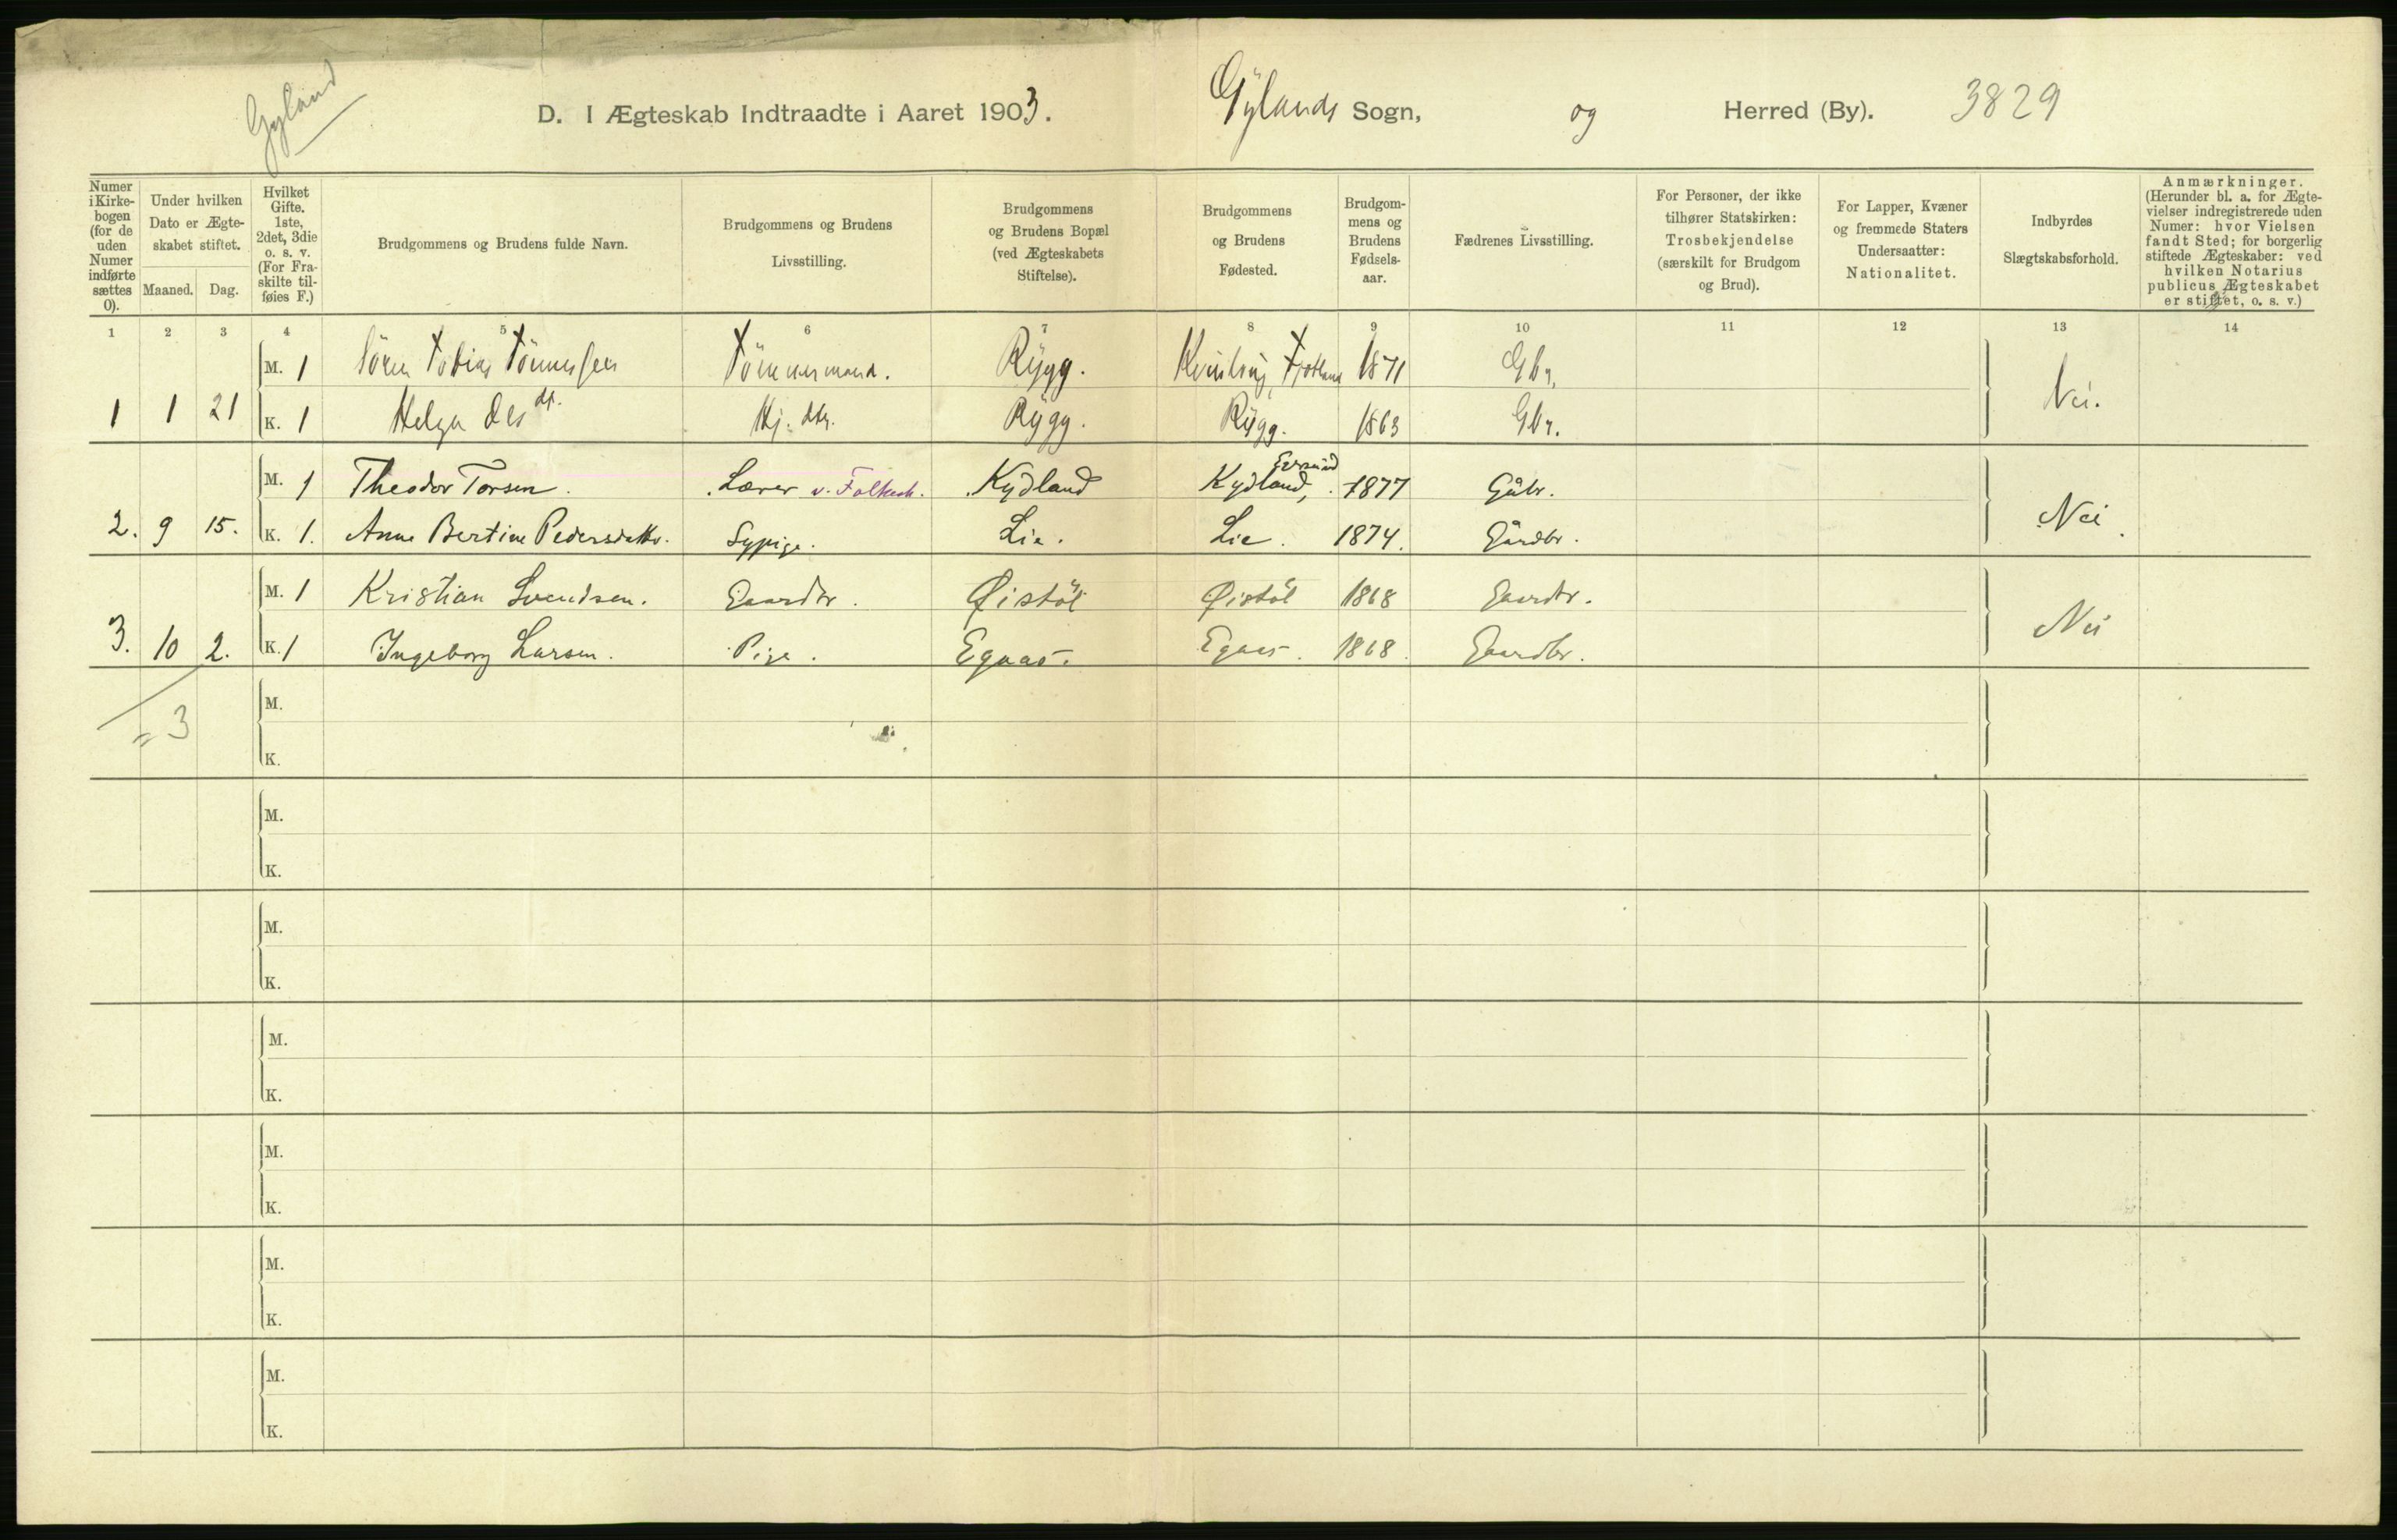 Gyland
D. I Ægteskab Indtraadte i Aaret 1903. Gylands Sogn, og Herred (By). 3829
Numer i Kirkebogen (for de uden Numer indførte sættes 0).
Under hvilken Dato er Ægteskabet stiftet.
Maaned. Dag.
Hvilket Gifte. 1ste, 2det, 3die o. s. v. (For Fraskilte tilføies F.)
Brudgommens og Brudens fulde Navn.
Brudgommens og Brudens Livsstilling.
Brudgommens og Brudens Bopæl (ved Ægteskabets Stiftelse).
Brudgommens og Brudens Fødested.
Brudgommens og Brudens Fødselsaar.
Fædrenes Livsstilling.
For Personer, der ikke tilhører Statskirken: Trosbekjendelse (særskilt for Brudgom og Brud).
For Lapper, Kvæner og fremmede Staters Undersaatter: Nationalitet.
Indbyrdes Slægtskabsforhold.
Anmærkninger. (Herunder bl. a. for Ægtevielser indregistrerede uden Numer: hvor Vielsen fandt Sted; for borgerlig stiftede Ægteskaber: ved hvilken Notarius publicus Ægteskabet er stiftet, o. s. v.)
1 2 3 4 5 6 7 8 9 10 11 12 13 14
M. 1 Sören Tobias Tönnessen Tömmermand. Rygg. Fjotland 1871 Gbr.
1 1 21 K. 1 Helga Ols dt. Hj. dtr. Rygg. Rygg. 1863 Gbr. Nei.
M. 1 Theodor Torsen. Lærer v. Folkesk. Kydland Kydland, 1877 Gåbr.
2. 9 15. K. 1. Anne Bertine Pedersdatter. Sypige. Lie. Lie. 1874. Gårdbr. Nei.
M. 1 Kristian Svendsen. Gaardbr. Øistöl Øistöl 1868 Gaardbr.
3. 10 2. K. 1 Ingeborg Larsen. Pige. Egaas. Egaas. 1868. Gaardbr. Nei
M.
= 3
K.
M.
K.
M.
K.
M.
K.
M.
K.
M.
K.
M.
K.